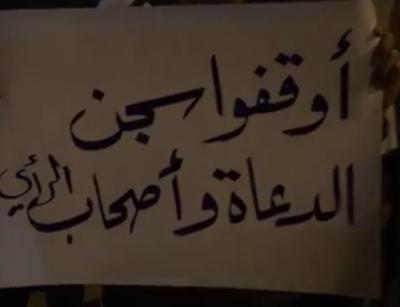 أوقفوا سجن
الدعاة وأصحاب الرأي